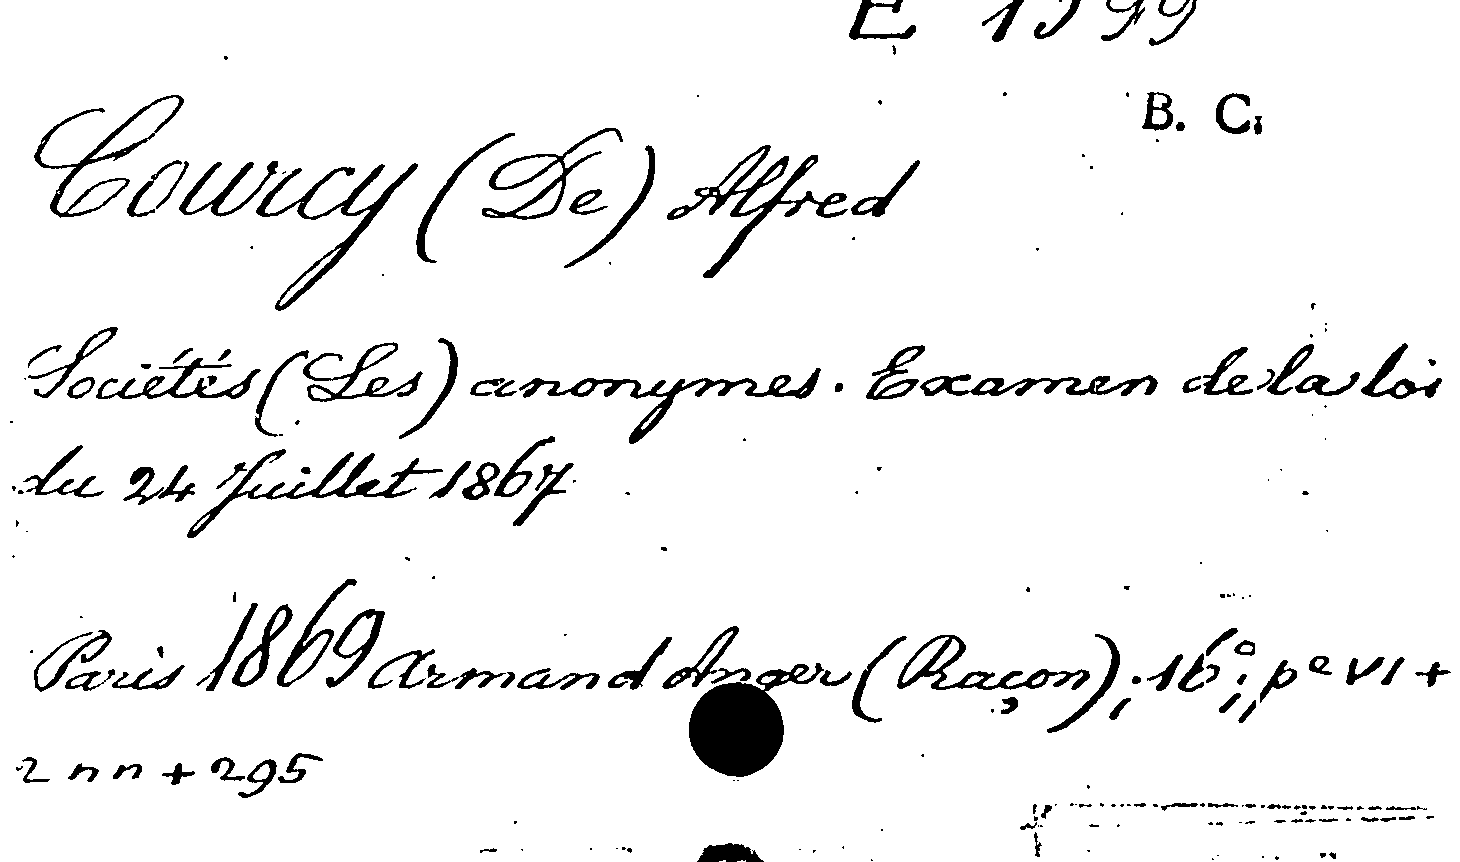 E 1599
B. C.
Courcy (De) Alfred
Sociétés (Les) anonymes. Examen de la loi
du 24 Juillet 1867
Paris 1869 Armand Anger (Raçon); 16°; pe VI +
2 nn + 295